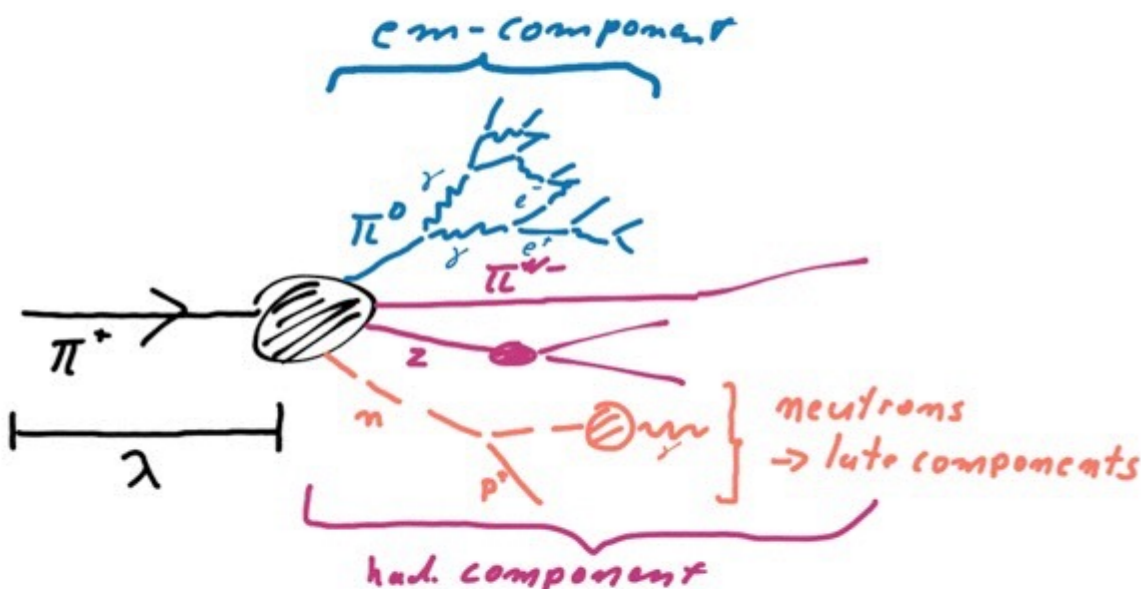 em-component
γ
π⁰
e⁻
γ
e⁺
π⁺
π⁺/⁻
z
λ
n
γ
p⁺
neutrons
→ late components
had. component